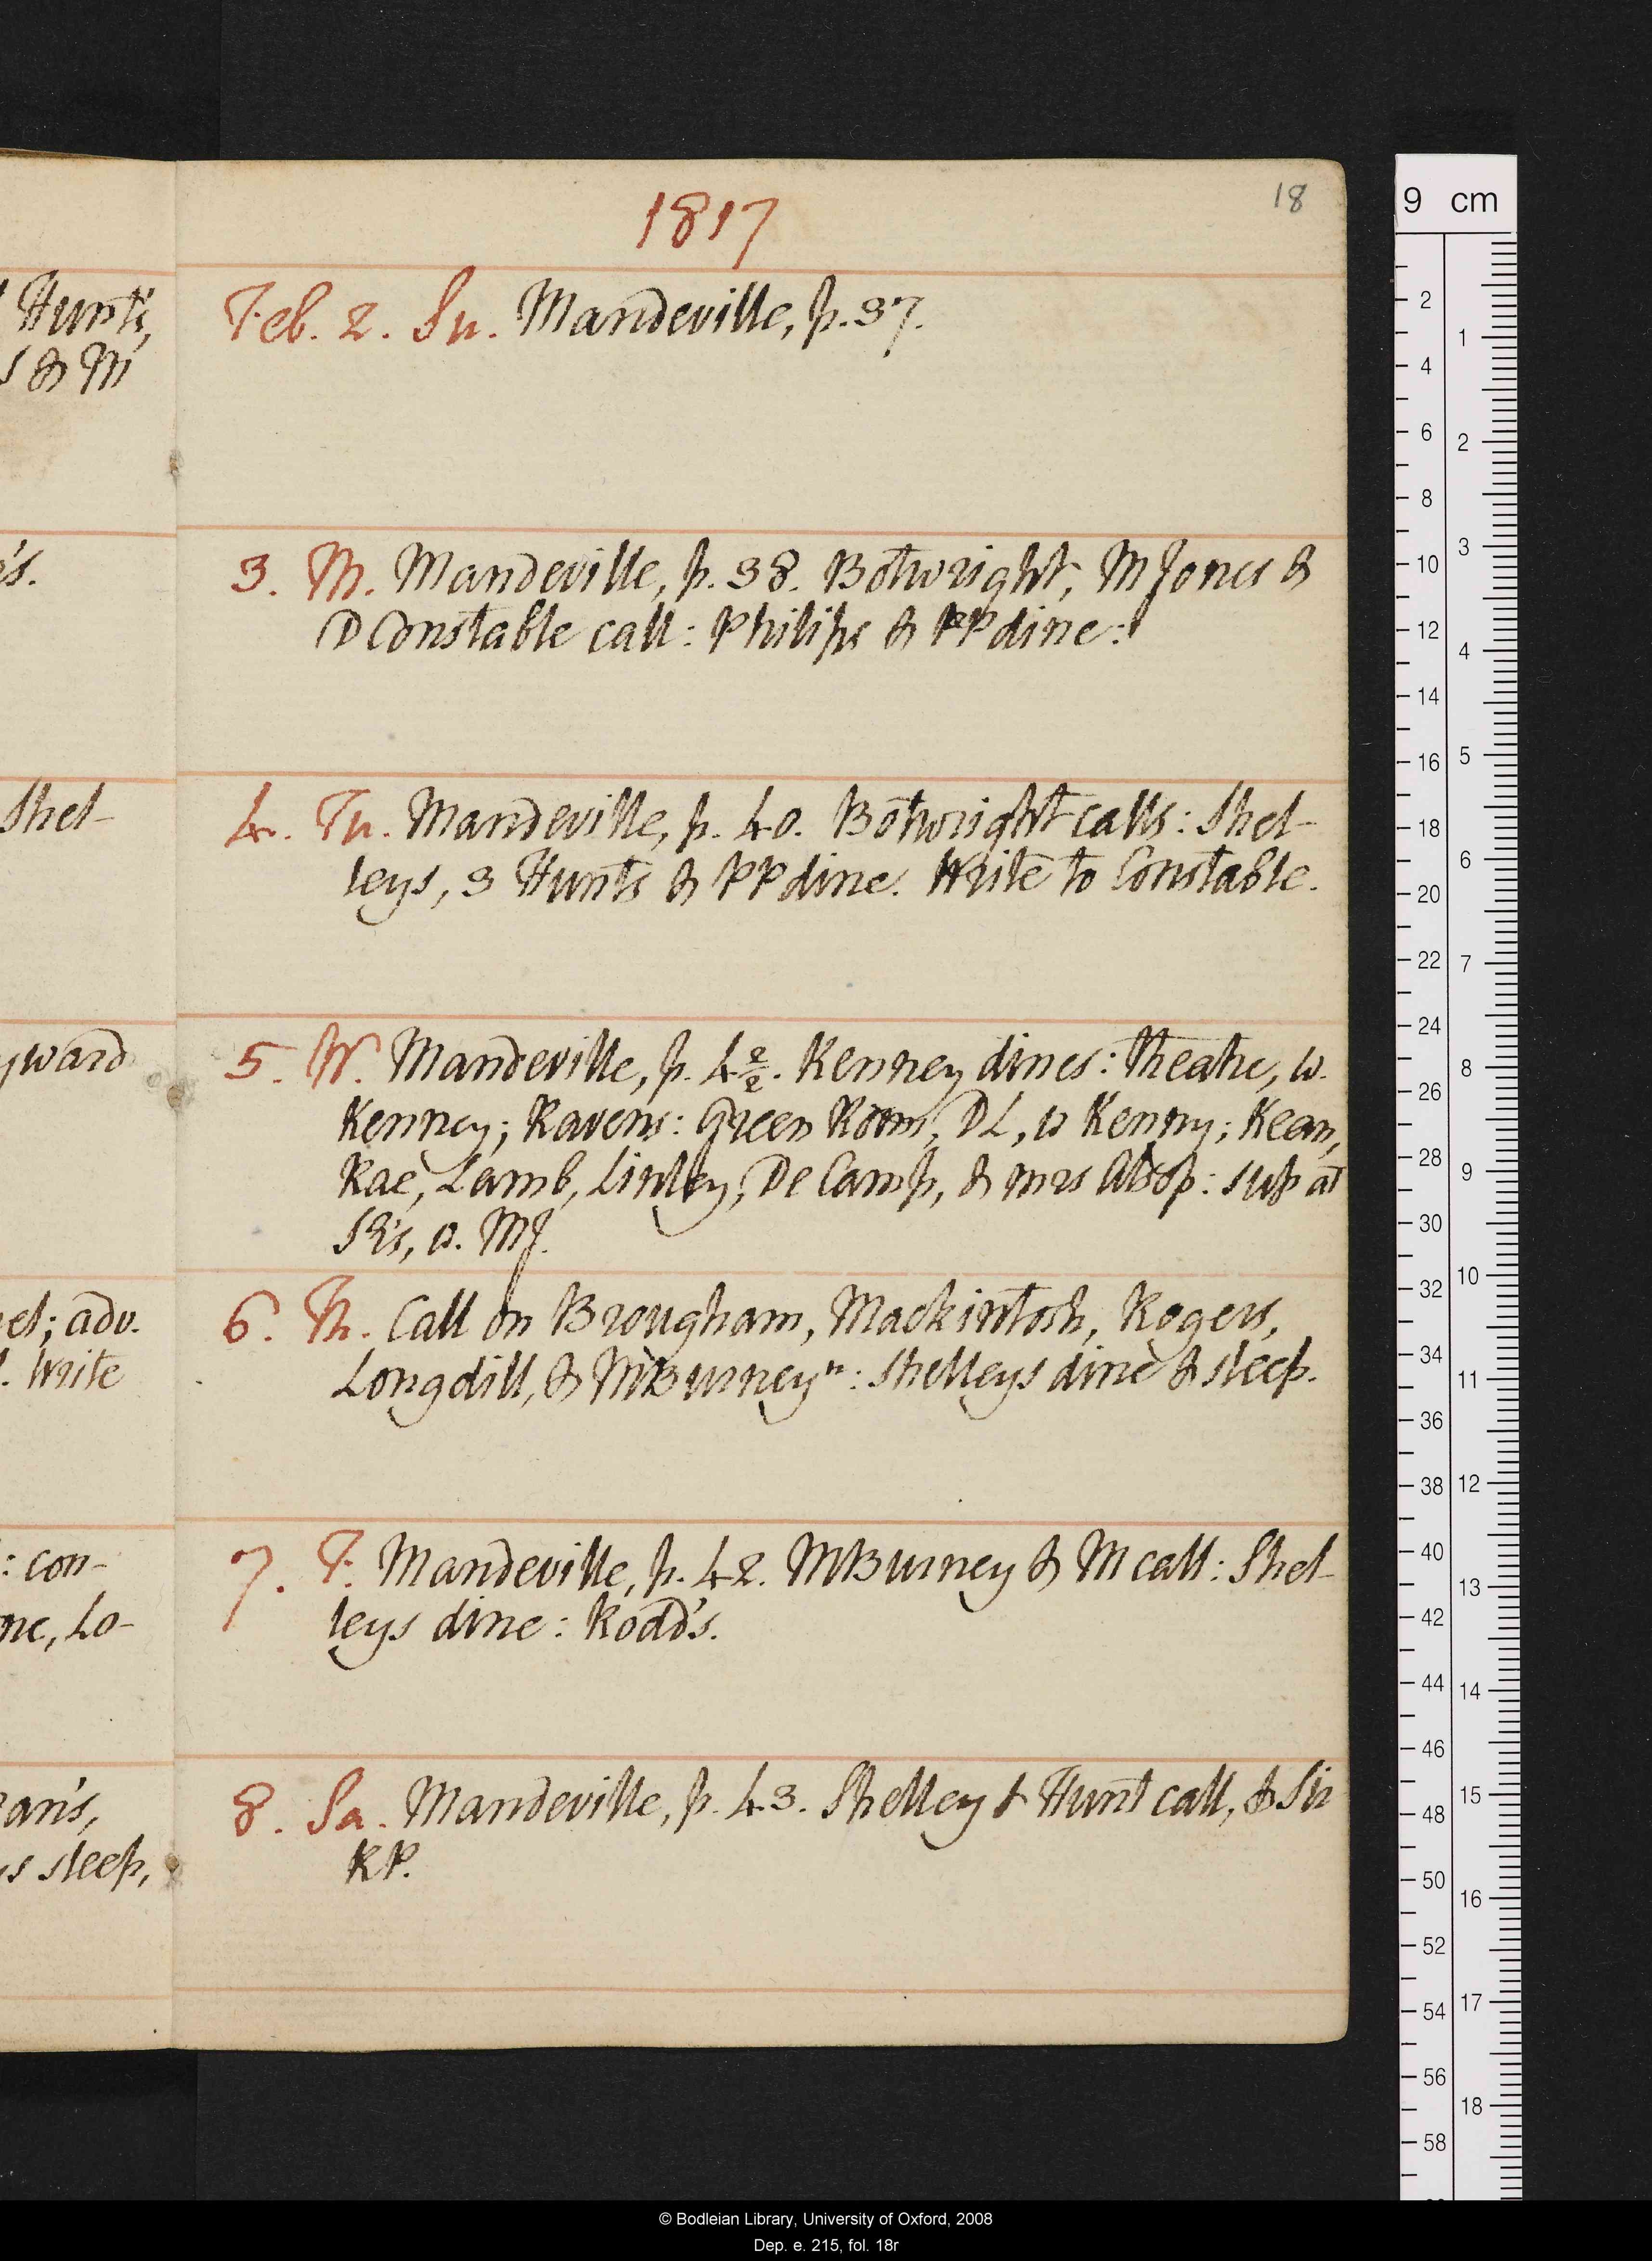 18
1817
Hunt's,
S & M
Feb. 2. Su. Mandeville, p. 37.
's.
3. M. Mandeville, p. 38. Botwright, M Jones &
D Constable call: Philips & PP dine:
Shel-
4. Tu. Mandeville, p. 40. Botwright calls: Shel-
leys, 3 Hunts & PP dine. Write to Constable.
yward
5. W. Mandeville, p. 4 2/2. Kenney dines: theatre, w.
Kenney; Ravens: Green Room, DL, w Kenny; Kean,
Rae, Lamb, Linley, De Camp, & mrs Alsop: sup at
w. MJ.
el; adv.
. Write
6. Th. Call on Brougham, Mackintosh, Rogers,
Longdill, & MBurney n: Shelleys dine & sleep.
: con-
ne, Lo-
7. F. Mandeville, p. 42. MBurney & M call: Shel-
leys dine: Rodd's.
an's,
s sleep,
8. Sa. Mandeville, p. 43. Shelley & Hunt call, & Sir
RP.
9 cm
2
4
6
8
10
12
14
16
18
20
22
24
26
28
30
32
34
36
38
40
42
44
46
48
50
52
54
56
58
1
2
3
4
5
6
7
8
9
10
11
12
13
14
15
16
17
18
© Bodleian Library, University of Oxford, 2008
Dep. e. 215, fol. 18r